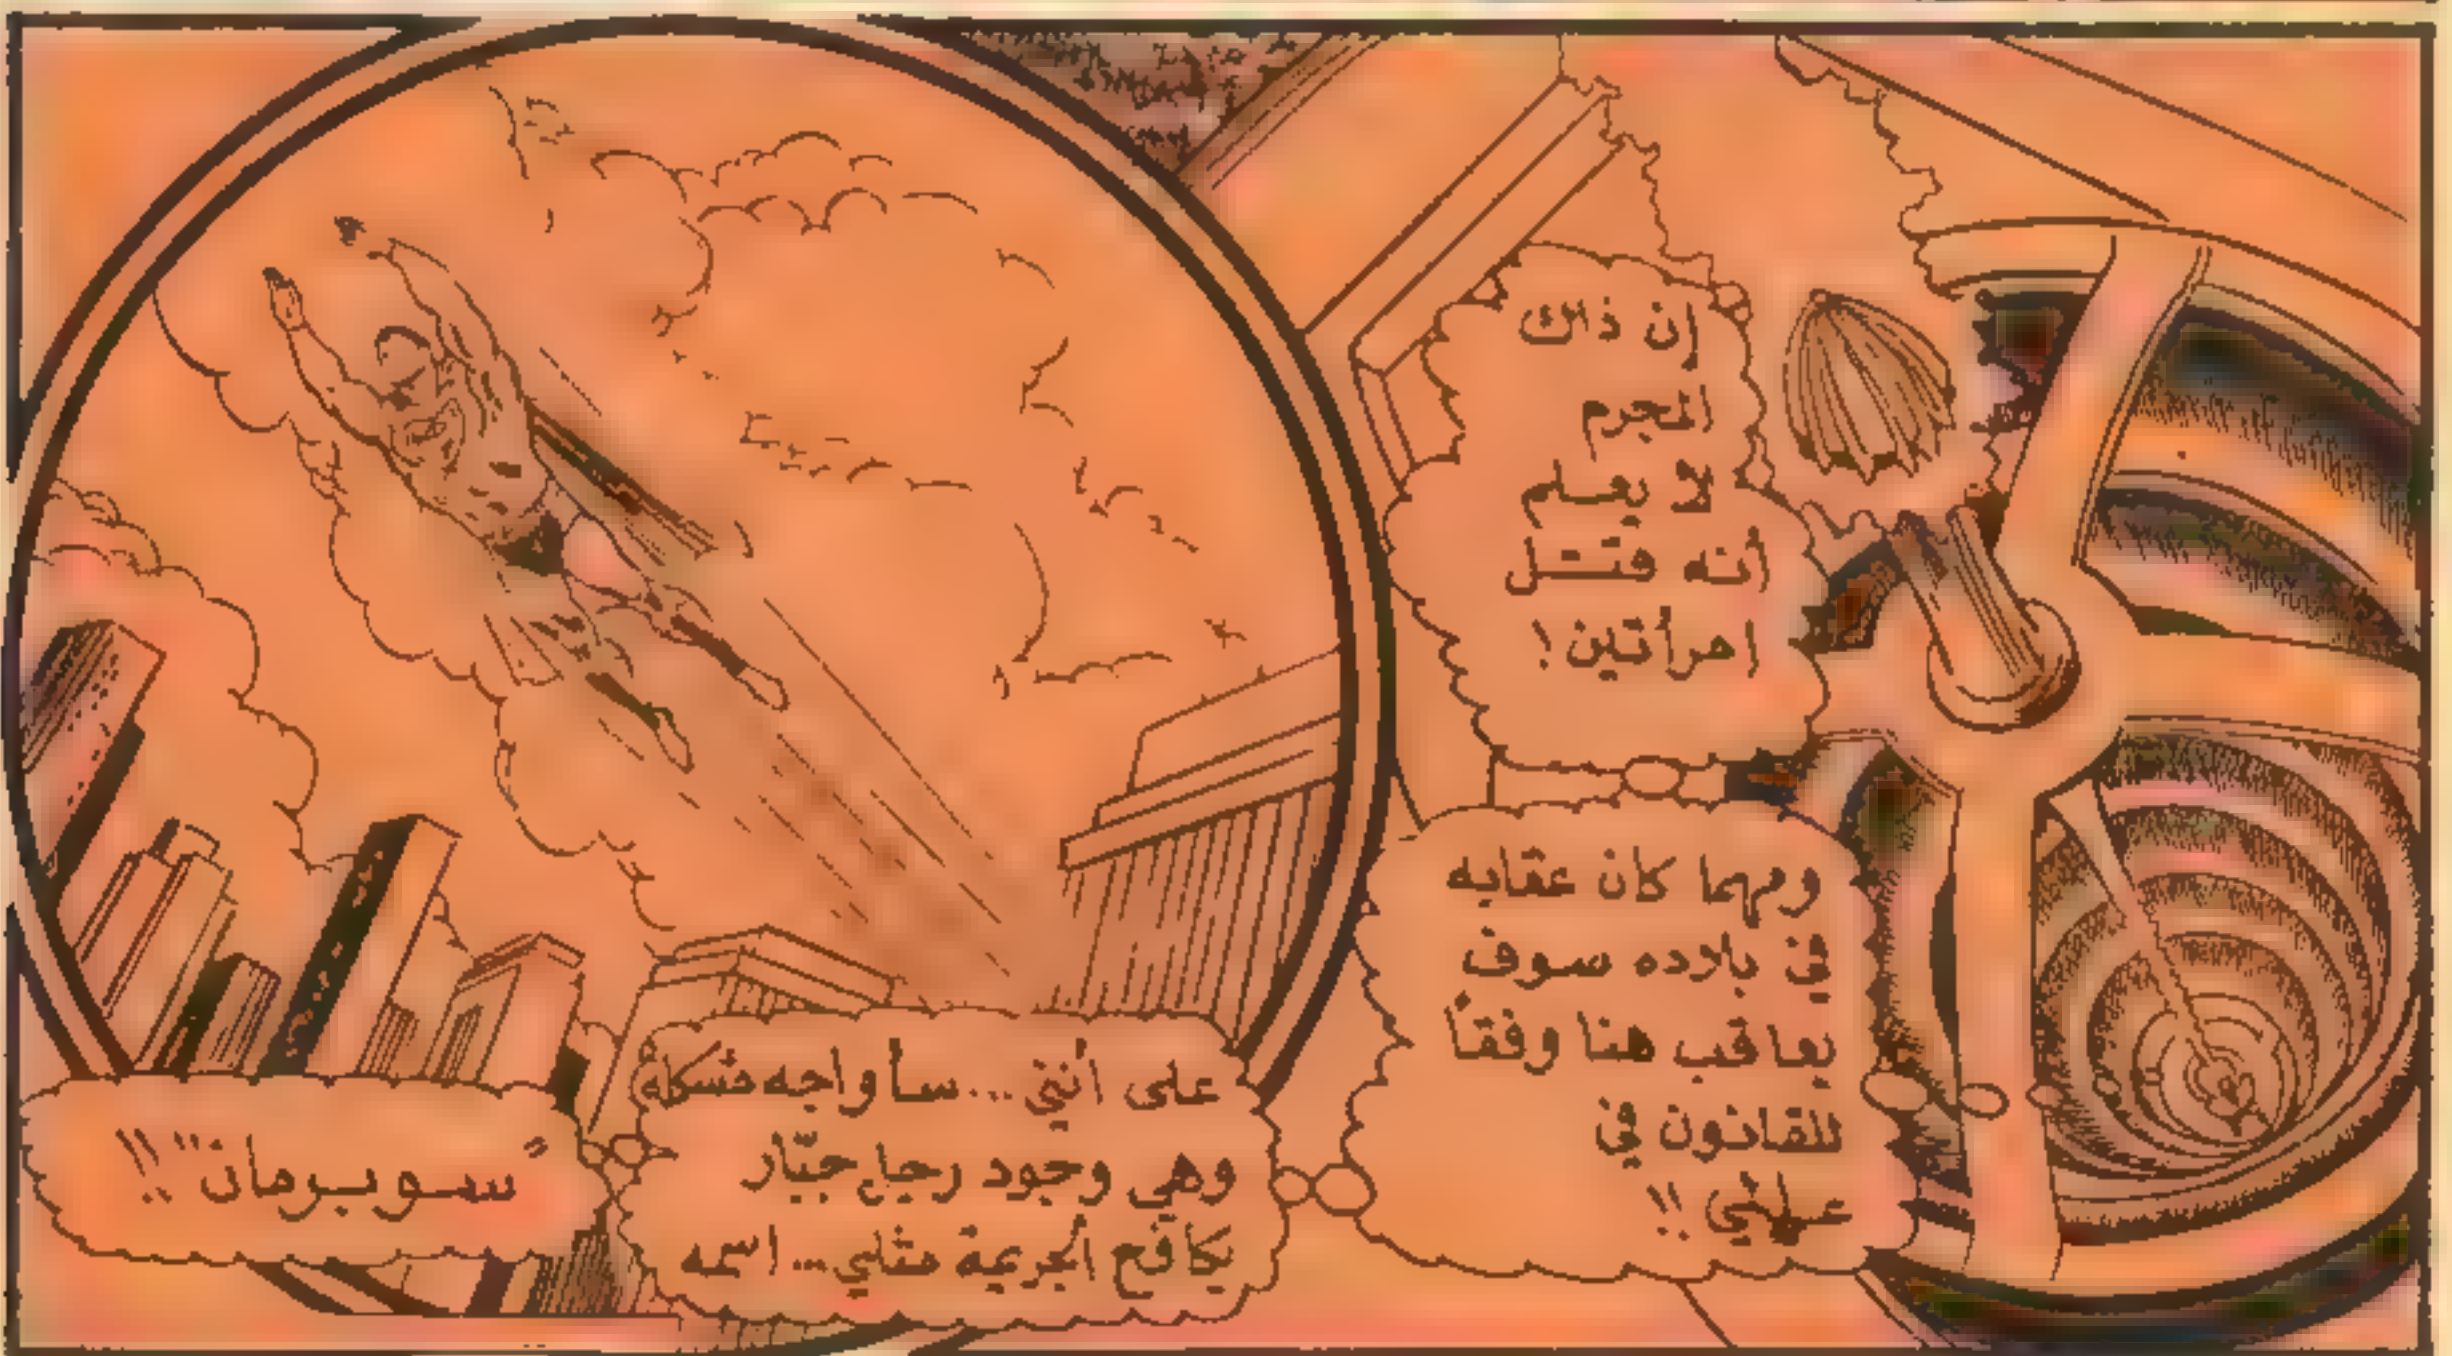 إن ذاك
المجرم
لا يعلم
أنه قتل
امرأتين !
ومهما كان عقابه
في بلاده سوف
يعاقب هنا وفقاً
للقانون في
على أنني ... سأواجه مشكلة
وهي وجود رجل جبّار
يكافح الجريمة مثلي ... اسمه
"سوبرمان" !!